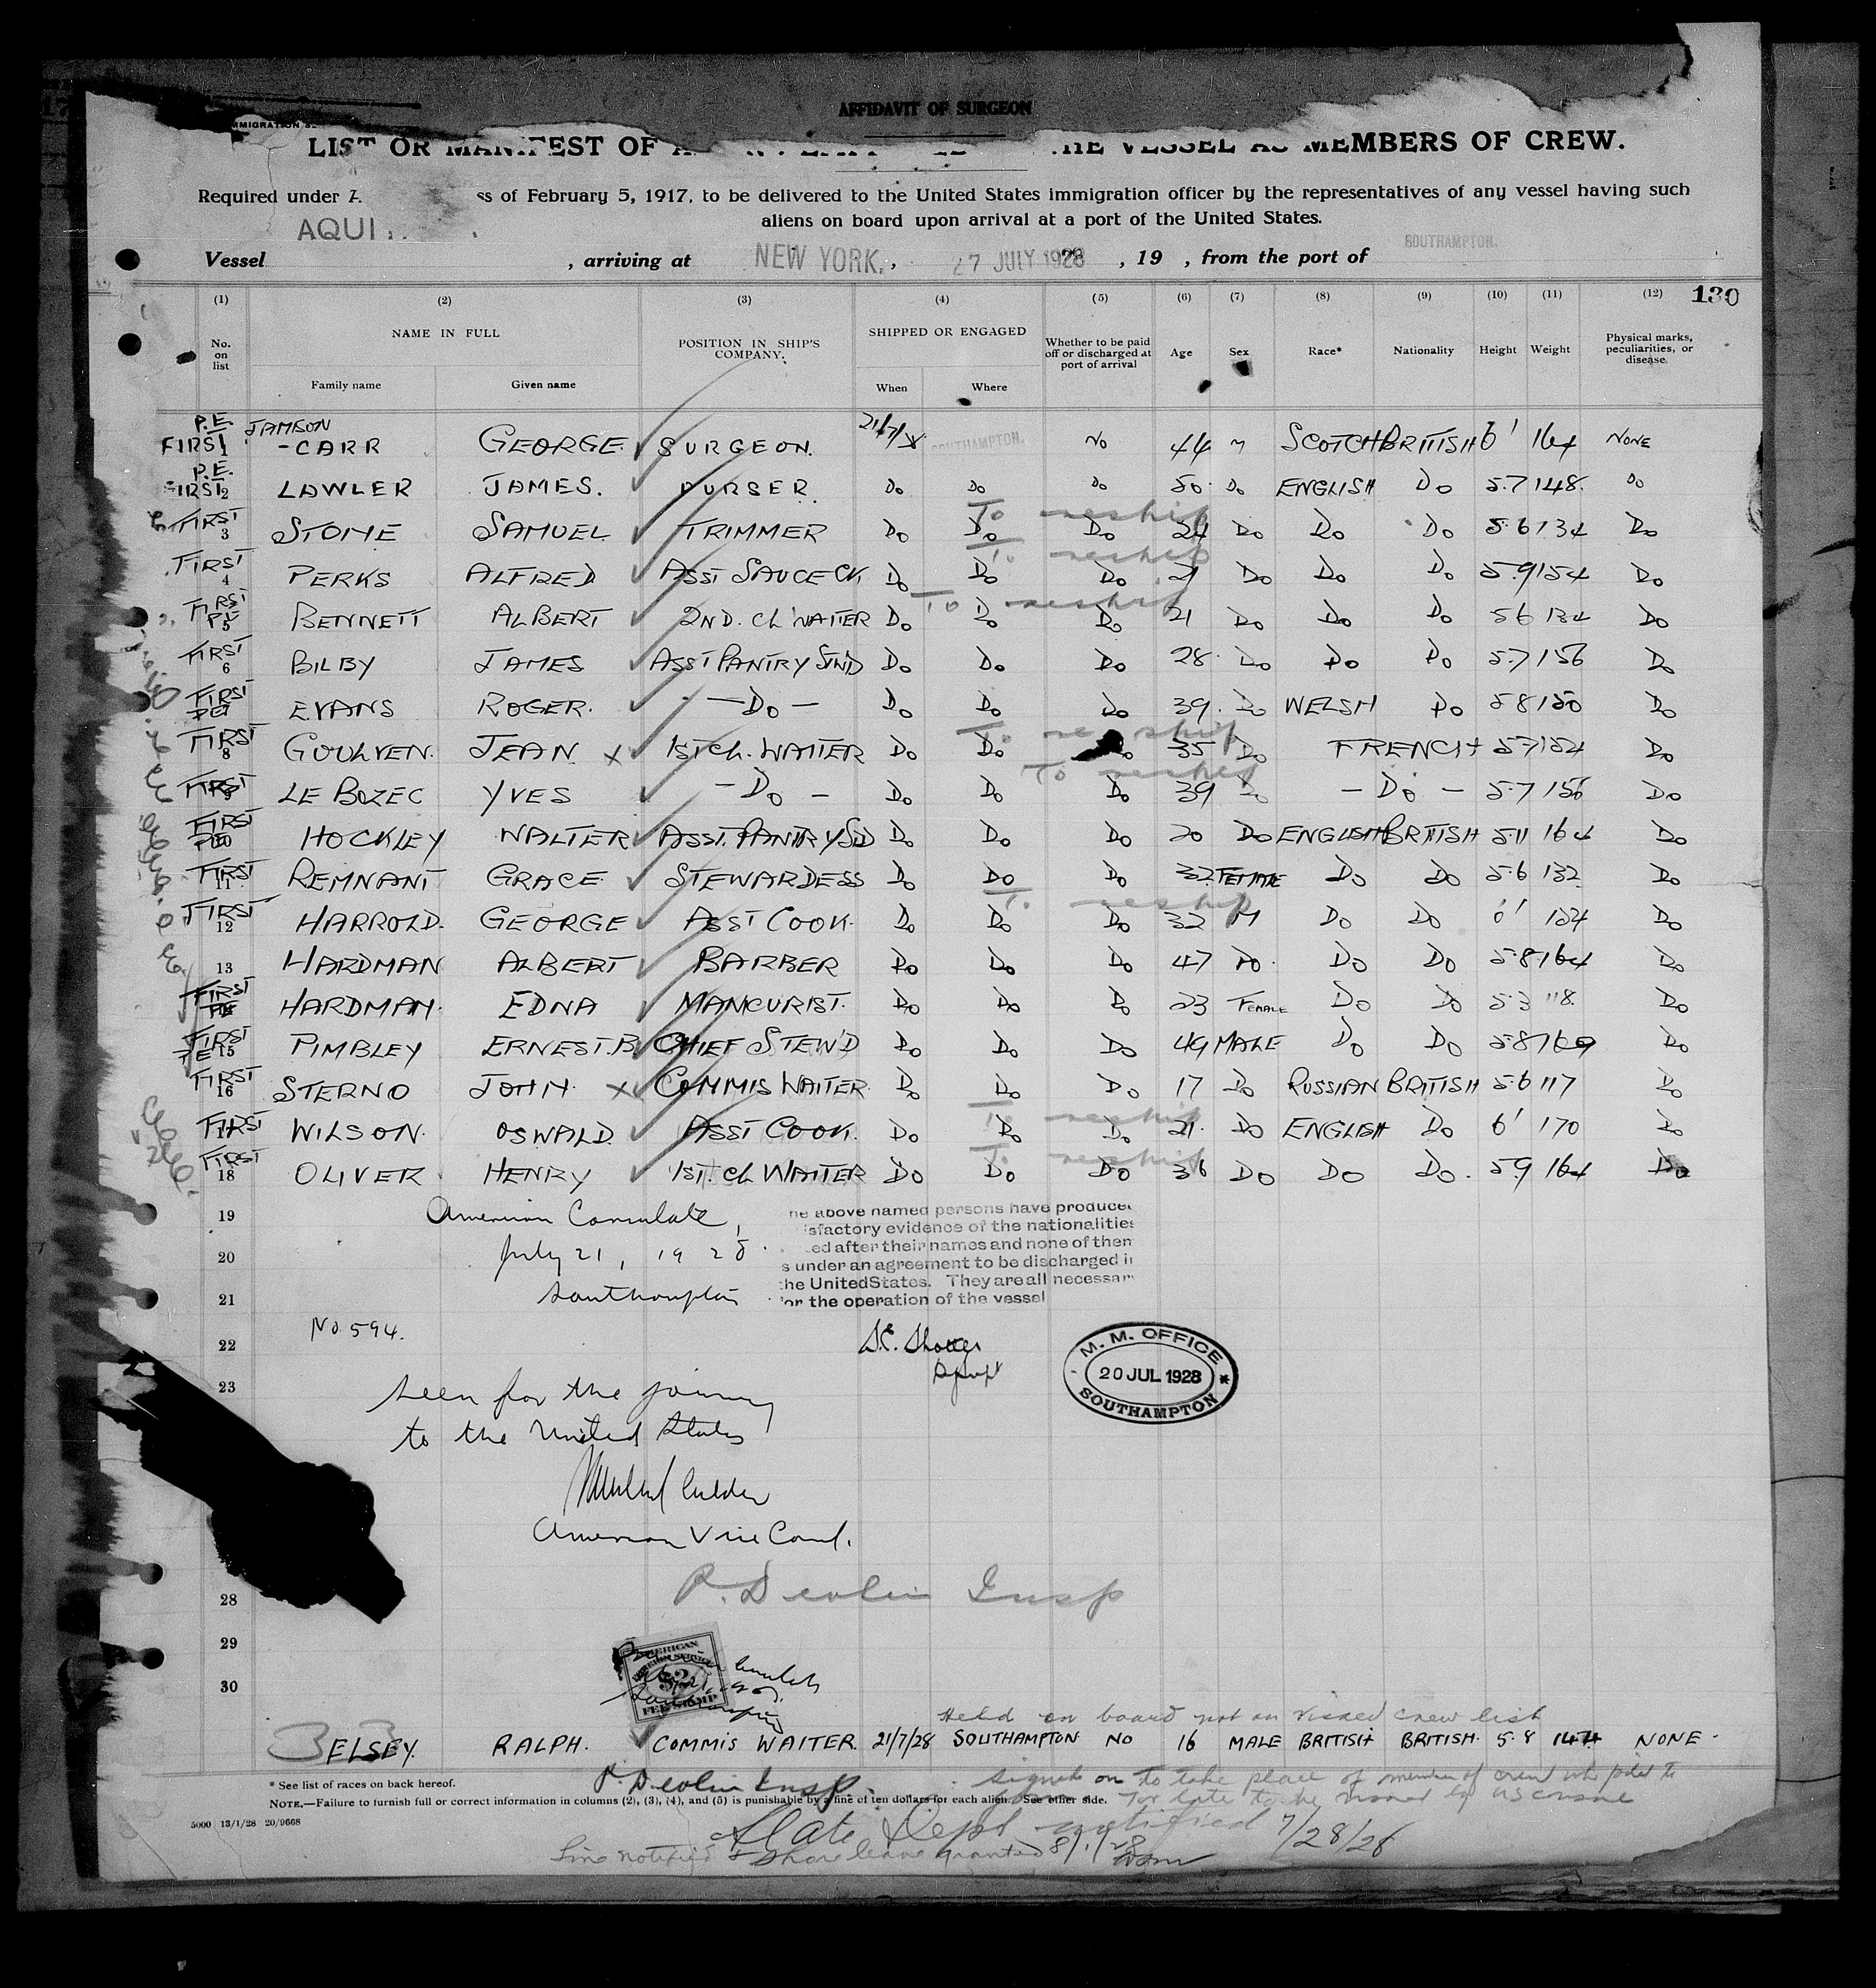 AFFIDAVIT OF SURGEON
LIST OR MANIFEST OF VESSEL AS MEMBERS OF CREW.
Required under of February 5, 1917, to be delivered to the United States immigration officer by the representatives of any vessel having such
aliens on board upon arrival at a port of the United States.
AQUI
SOUTHAMPTON.
Vessel , arriving at NEW YORK, , 27 JULY 1928 , 19 , from the port of
130
(1) (2) (3) (4) (5) (6) (7) (8) (9) (10) (11) (12)
No. on list NAME IN FULL POSITION IN SHIP'S COMPANY. SHIPPED OR ENGAGED Whether to be paid off or discharged at port of arrival Age Sex Race* Nationality Height Weight Physical marks, peculiarities, or disease
Family name Given name When Where
P.E. JAMSON
FIRST 1 -CARR GEORGE. SURGEON. 21/7/ SOUTHAMPTON. No 44 M SCOTCH BRITISH 6' 164 NONE
P.E.
FIRST 2 LAWLER JAMES. PURSER. Do Do Do 50 Do ENGLISH Do 5.7 148. Do
To reship
FIRST 3 STONE SAMUEL TRIMMER Do Do Do 24 Do Do Do 5.6 134 Do
To reship
FIRST 4 PERKS ALFRED ASST SAUCE CK. Do Do Do 21 Do Do Do 5.9 154 Do
To reship
FIRST PE 5 BENNETT ALBERT 2ND. CL WAITER Do Do Do 21 Do Do Do 5.6 134 Do
FIRST 6 BILBY JAMES ASST PANTRY STWD Do Do Do 28. Do Do Do 5.7 156 Do
FIRST PE 7 EVANS ROGER. -Do- Do Do Do 39. Do WELSH Do 5.8 150 Do
To reship
FIRST 8 GOULVEN. JEAN X 1ST CL. WAITER Do Do Do 35 Do FRENCH 5.7 154 Do
To reship
FIRST 9 LE BOZEC YVES -Do- Do Do Do 39 Do -Do- 5.7 156 Do
FIRST 10 HOCKLEY WALTER ASST. PANTRY SWD Do Do Do 20 Do ENGLISH BRITISH 5.11 164 Do
FIRST 11 REMNANT GRACE STEWARDESS Do Do Do 32 FEMALE Do Do 5.6 132 Do
To reship
FIRST 12 HARROLD. GEORGE ASST COOK. Do Do Do 32 M Do Do 6' 154 Do
13 HARDMAN ALBERT BARBER Do Do Do 47 Do Do Do 5.8 164 Do
FIRST HARDMAN. EDNA MANCURIST. Do Do Do 23 FEMALE Do Do 5.3 118. Do
FIRST PE 15 PIMBLEY ERNEST.B. CHIEF STEWD Do Do Do 49 MALE Do Do 5.8 169 Do
FIRST 16 STERNO JOHN. X COMMIS WAITER. Do Do Do 17 Do RUSSIAN BRITISH 5.6 117 Do
To reship
FIRST WILSON. OSWALD. ASST COOK. Do Do Do 21. Do ENGLISH Do 6' 170 Do
To reship
FIRST 18 OLIVER HENRY 1ST. CL WAITER Do Do Do 36 Do Do Do. 5.9 164 Do
19 American Consulate,
20 July 21, 1928.
21 Southampton
he above named persons have produced
isfactory evidence of the nationalities
ed after their names and none of them
s under an agreement to be discharged in
the United States. They are all necessary
for the operation of the vessel
No. 594.
22
23 Seen for the journey
to the United States
M. M. OFFICE
20 JUL 1928
SOUTHAMPTON
American Vice Consul.
28 P. Devlin Insp
29
30
AMERICAN
FOREIGN SERVICE
$2
FEE STAMP
Held on board not on visaed crew list
BELSEY. RALPH. COMMIS WAITER. 21/7/28 SOUTHAMPTON NO 16 MALE BRITISH BRITISH. 5.8 144 NONE.
* See list of races on back hereof.
P. Devlin Insp.
signed on to take place of member of crew who failed to
NOTE.—Failure to furnish full or correct information in columns (2), (3), (4), and (5) is punishable by a fine of ten dollars for each alien. See other side.
join. Too late to be visaed by US consul
5000 13/1/28 20/9668
State Dept notified 7/28/28
Line notified & shore leave granted 8/1/28